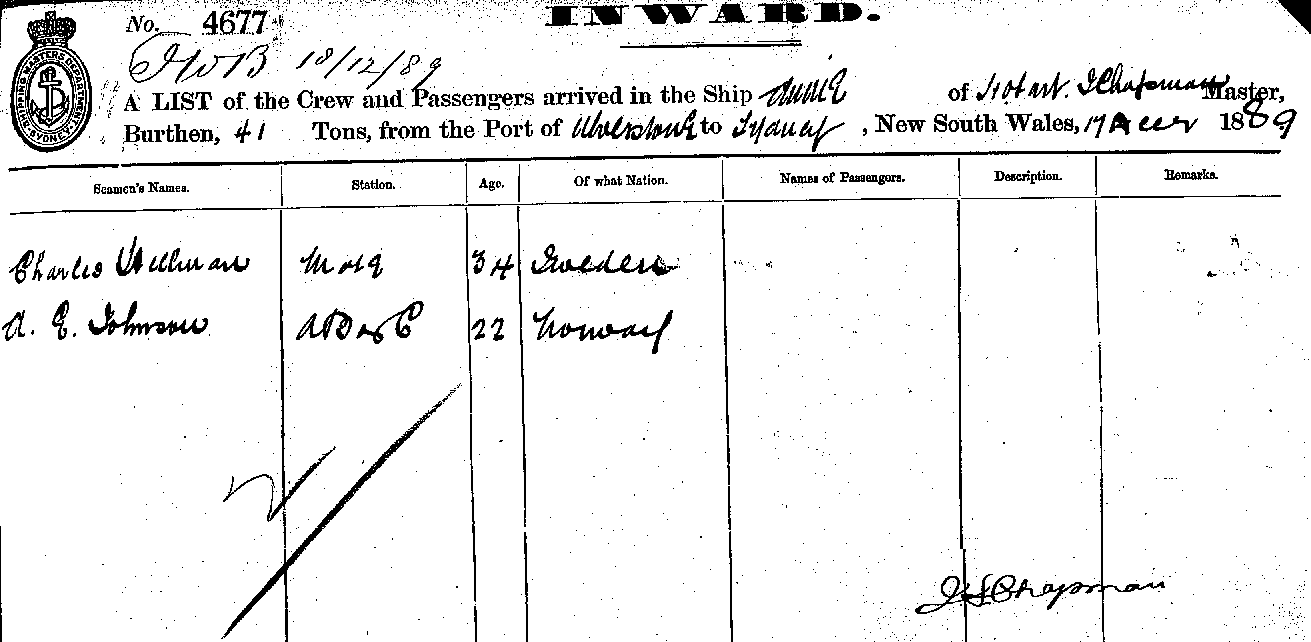 No. 4677
INWARD.
JWB 18/12/89
SHIPPING MASTERS DEPARTMENT SYDNEY
A LIST of the Crew and Passengers arrived in the Ship Annie of Hobart. J Chapman Master,
Burthen, 41 Tons, from the Port of Ulverstone to Sydney, New South Wales, 17 Decr 1889
Seamen's Names. Station. Age. Of what Nation. Names of Passengers. Description. Remarks.
Charles Hillman Mate 34 Sweden
A. E. Johnson AB & C 22 Norway
J S Chapman